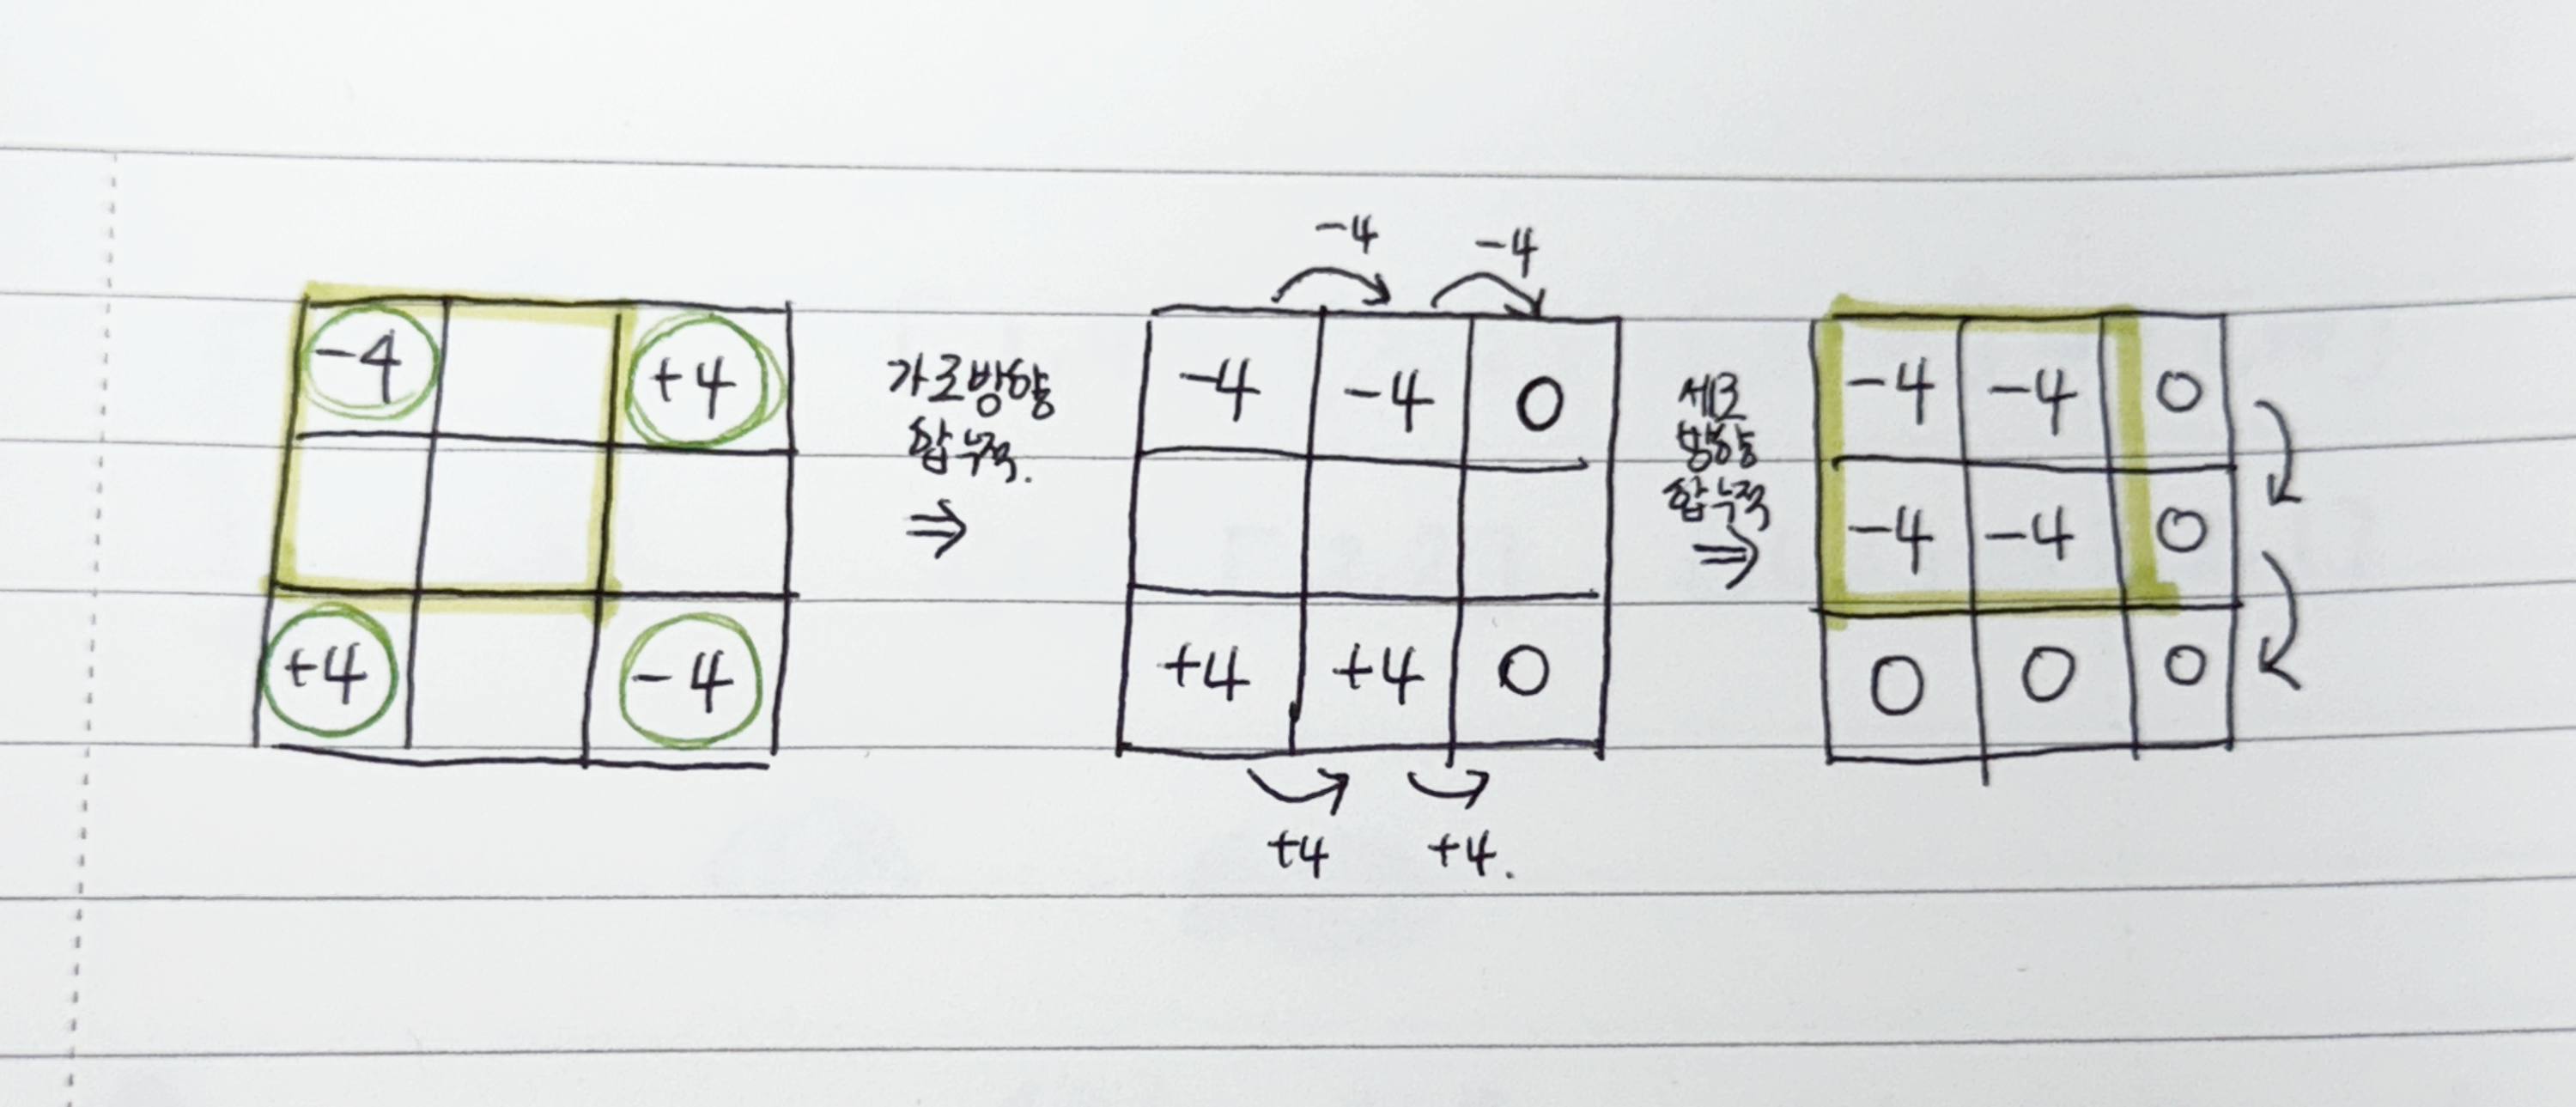 -4 +4
+4 -4
가로방향
합 누적.
⇒
-4 -4
-4 -4 0
+4 +4 0
+4 +4.
세로
방향
합 누적
⇒
-4 -4 0
-4 -4 0
0 0 0